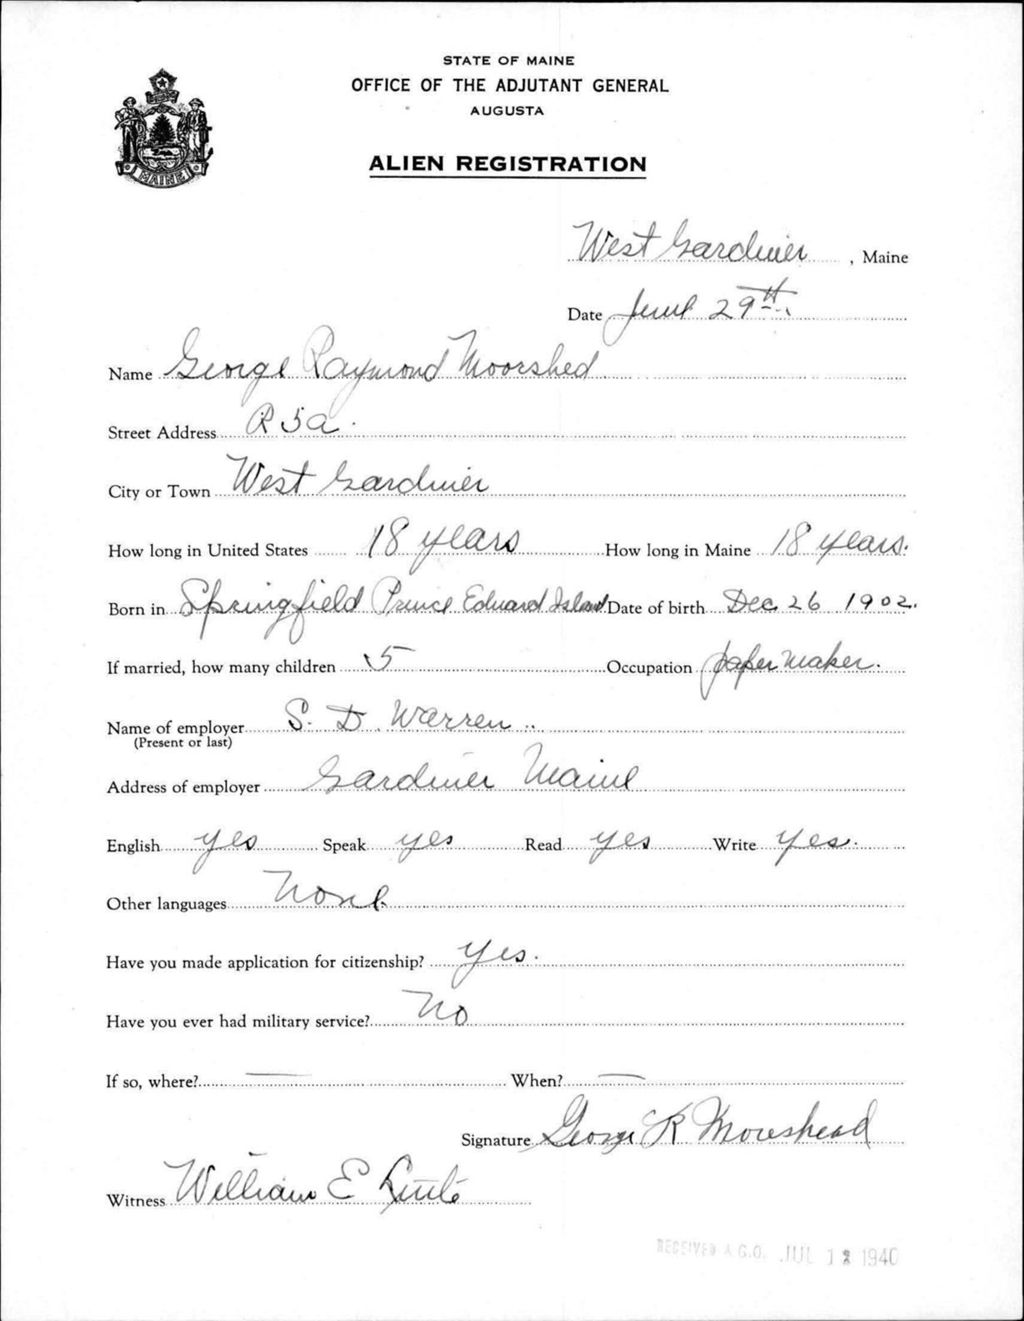 STATE OF MAINE
OFFICE OF THE ADJUTANT GENERAL
AUGUSTA
MAINE
ALIEN REGISTRATION
West Gardiner, Maine
Date June 29th
Name George Raymond Moorshed
Street Address R 5a.
City or Town West Gardiner
How long in United States 18 years How long in Maine 18 years.
Born in Springfield Prince Edward Island Date of birth Dec 26 1902.
If married, how many children 5 Occupation paper maker.
Name of employer S. D. Warren
(Present or last)
Address of employer Gardiner Maine
English yes Speak yes Read yes Write yes.
Other languages None
Have you made application for citizenship? Yes.
Have you ever had military service? No
If so, where? — When? —
Signature George R Moorshead
Witness William E
RECEIVED A.G.O. JUL 1940